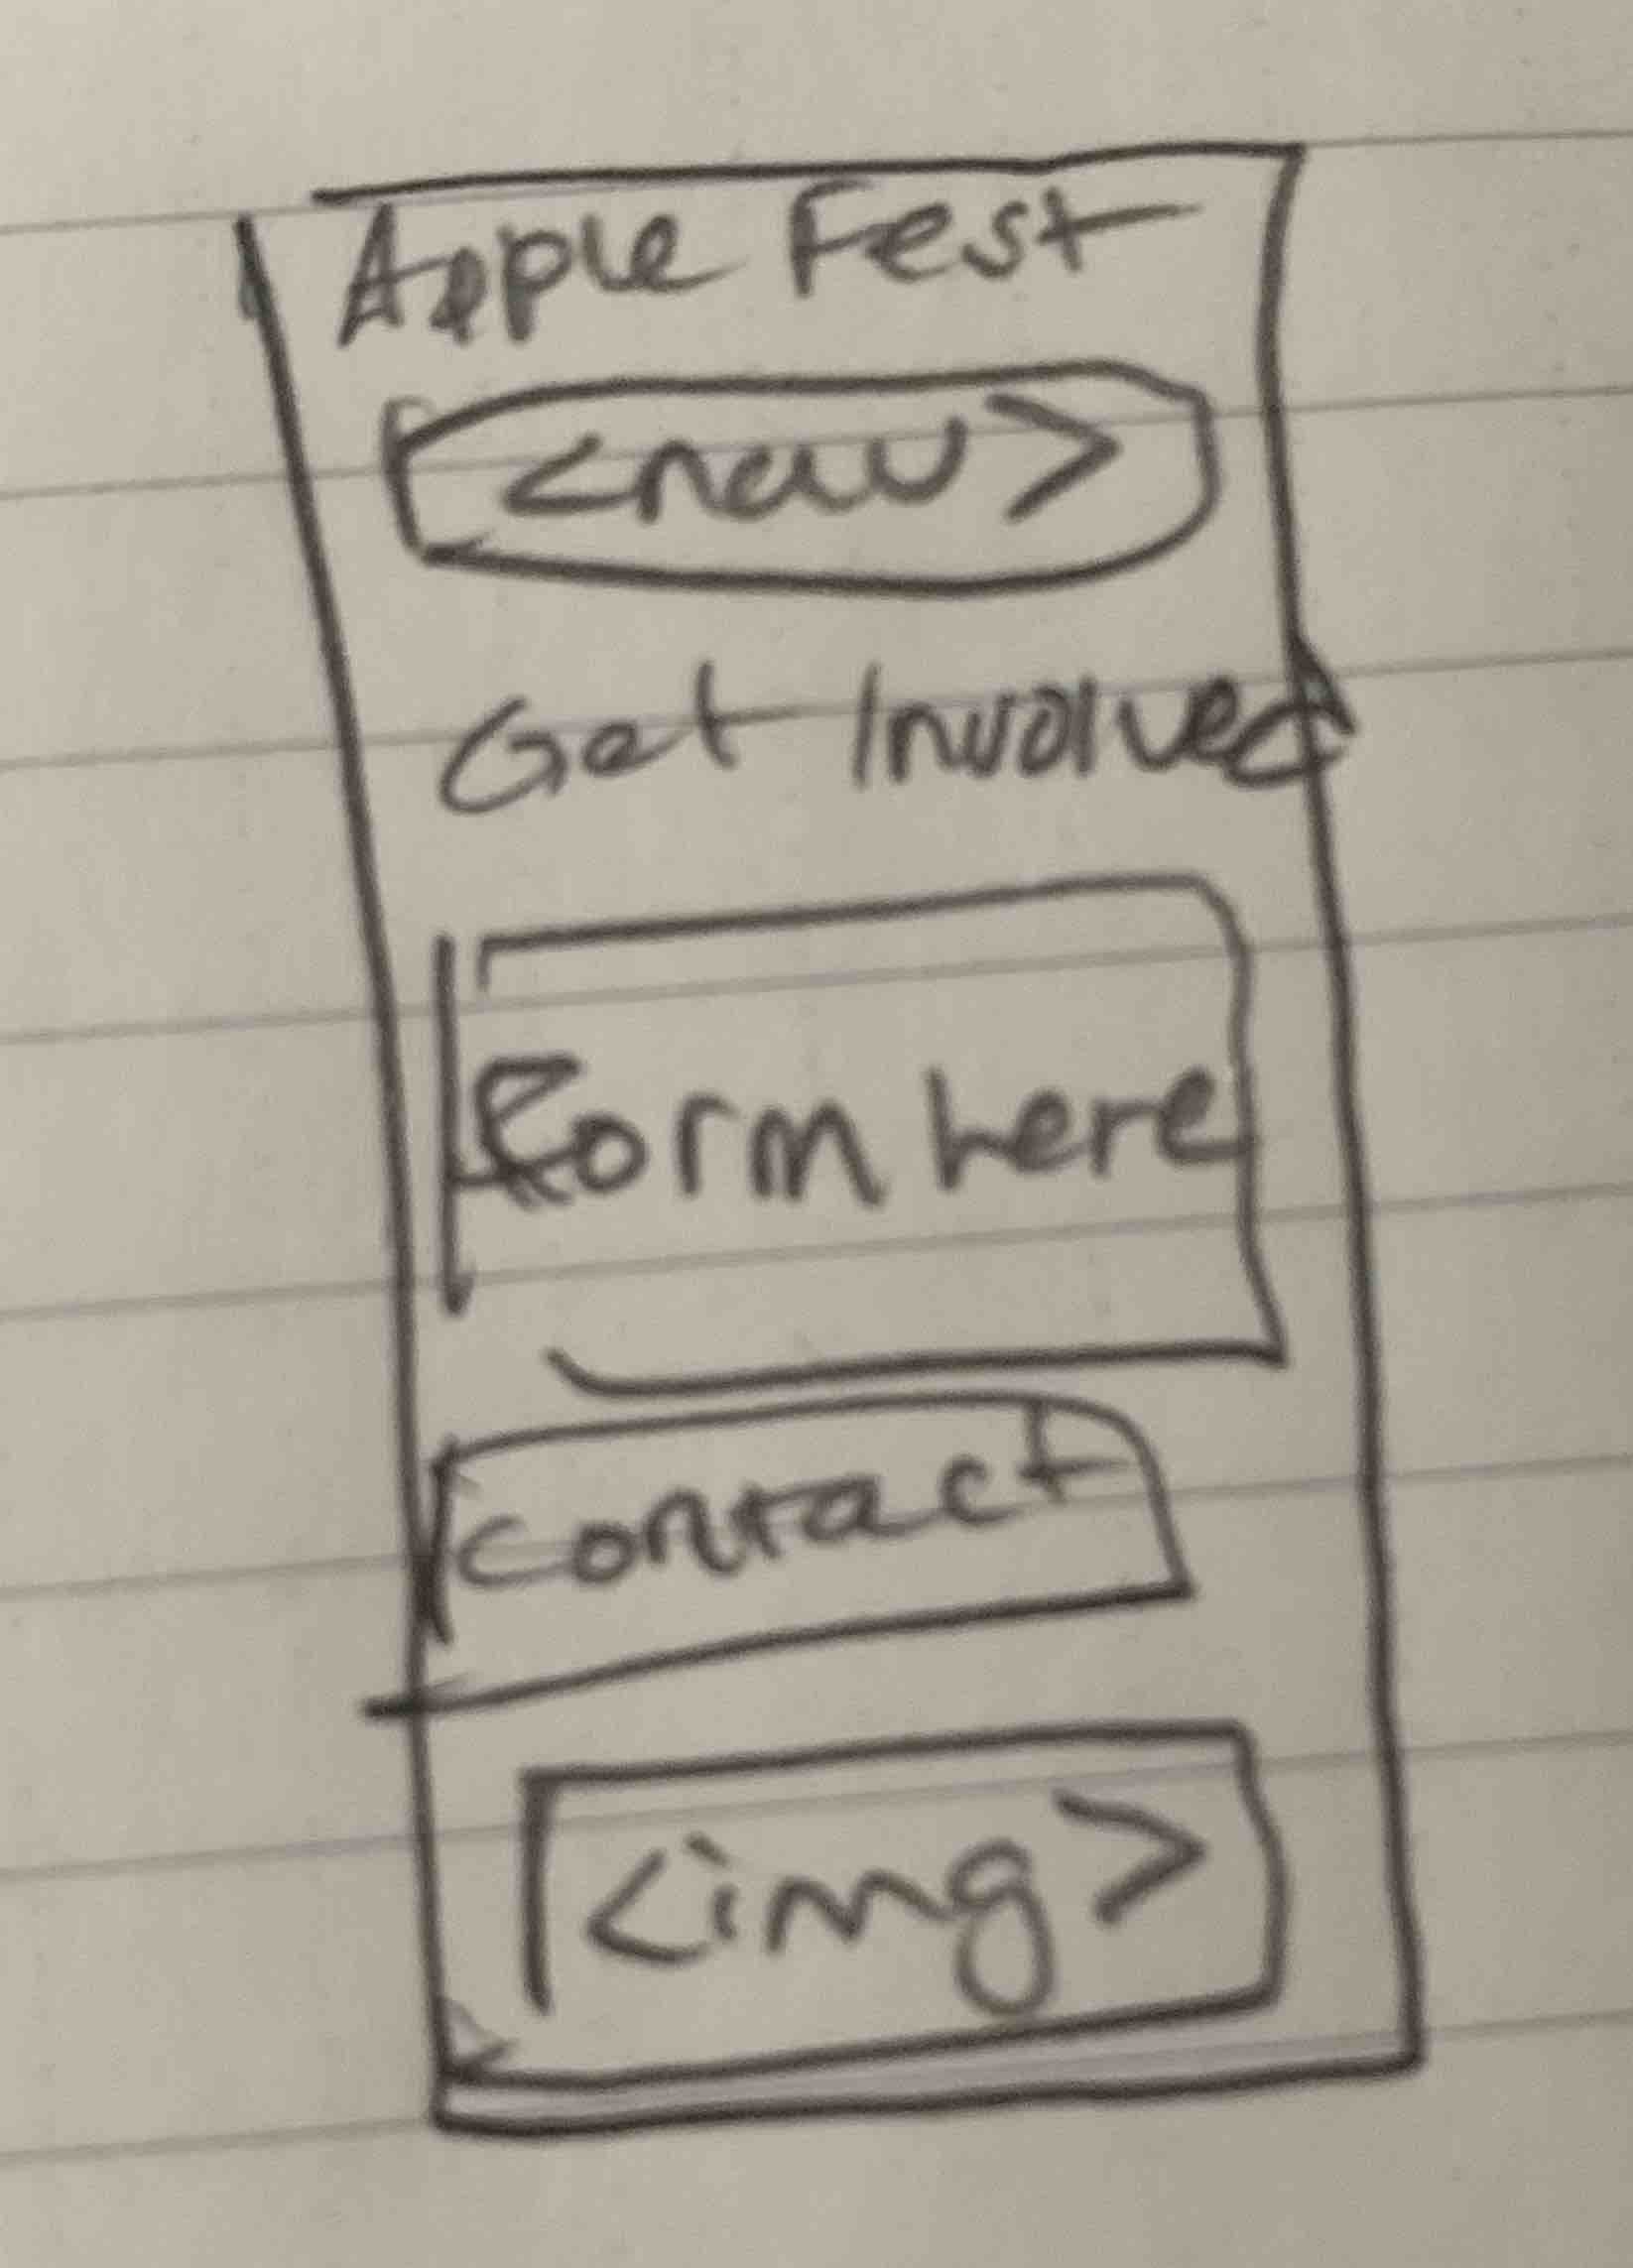 Apple Fest
<nav>
Get Involved
Form here
contact
<img>